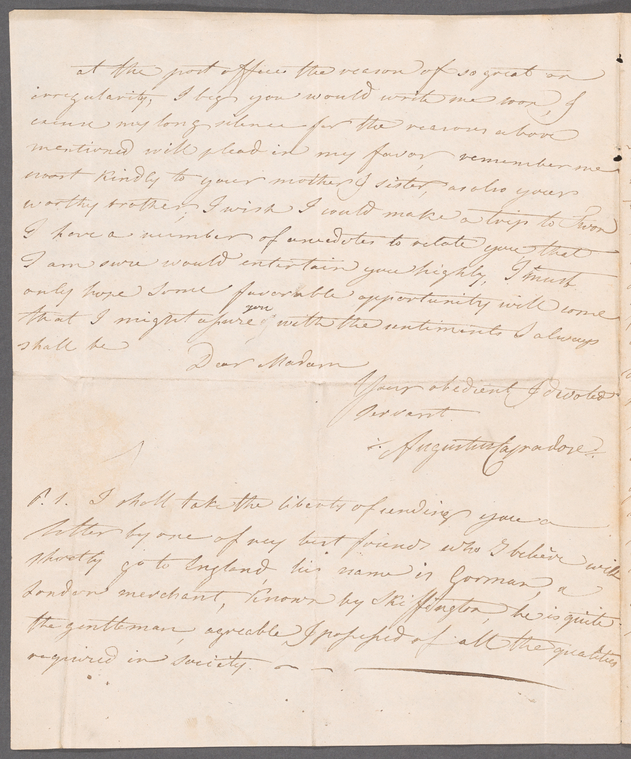 at the post office the reason of so great an
irregularity, I beg you would write me soon, &
cause my long silence for the reasons above
mentioned will plead in my favor remember me
most kindly to your mother & sister, as also your
worthy brother, I wish I could make a trip to
I have a number of anecdotes to relate you that
I am sure would entertain you highly, I must
only hope some favorable opportunity will come
that I might you with the sentiments I always
shall be Dear Madam
Your obedient & devoted
Servant
Augustus
P.S. I shall take the liberty of sending you a
letter by one of my best friends who I believe will
shortly go to England, his name is Gorman, a
London merchant, known by Skiffington, he is quite
the gentleman, agreable & possessed of all the qualities
required in society.